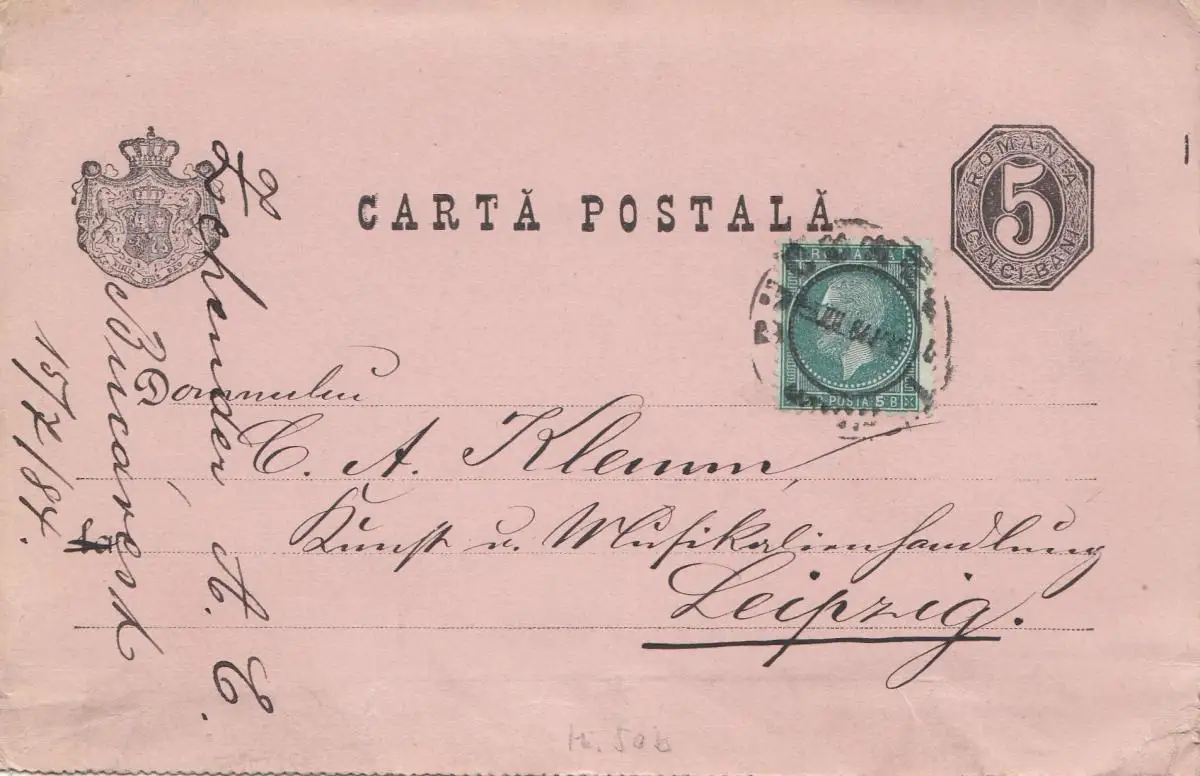 CARTĂ POSTALĂ
ROMANIA
5
CINCI BANI
ROMANIA
POSTA 5 B
Domnului
C. A. Klemm,
Kunst u. Musikalienhandlung
Leipzig.
A. C.
Bucarest
15/2/84.